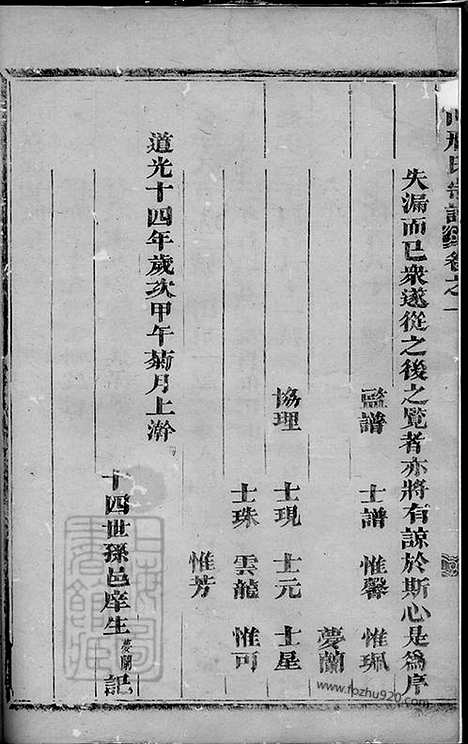 氏宗譜 卷之一
失漏而已衆遂從之後之覧者亦將有諒於斯心是爲序
監譜 士譜 惟馨 惟珮
夢蘭
協理 士現 士元 士星
士珠 雲龍 惟可
惟芳
道光十四年歲次甲午菊月上澣
十四世孫邑庠生夢蘭記
www.fozhu920.com